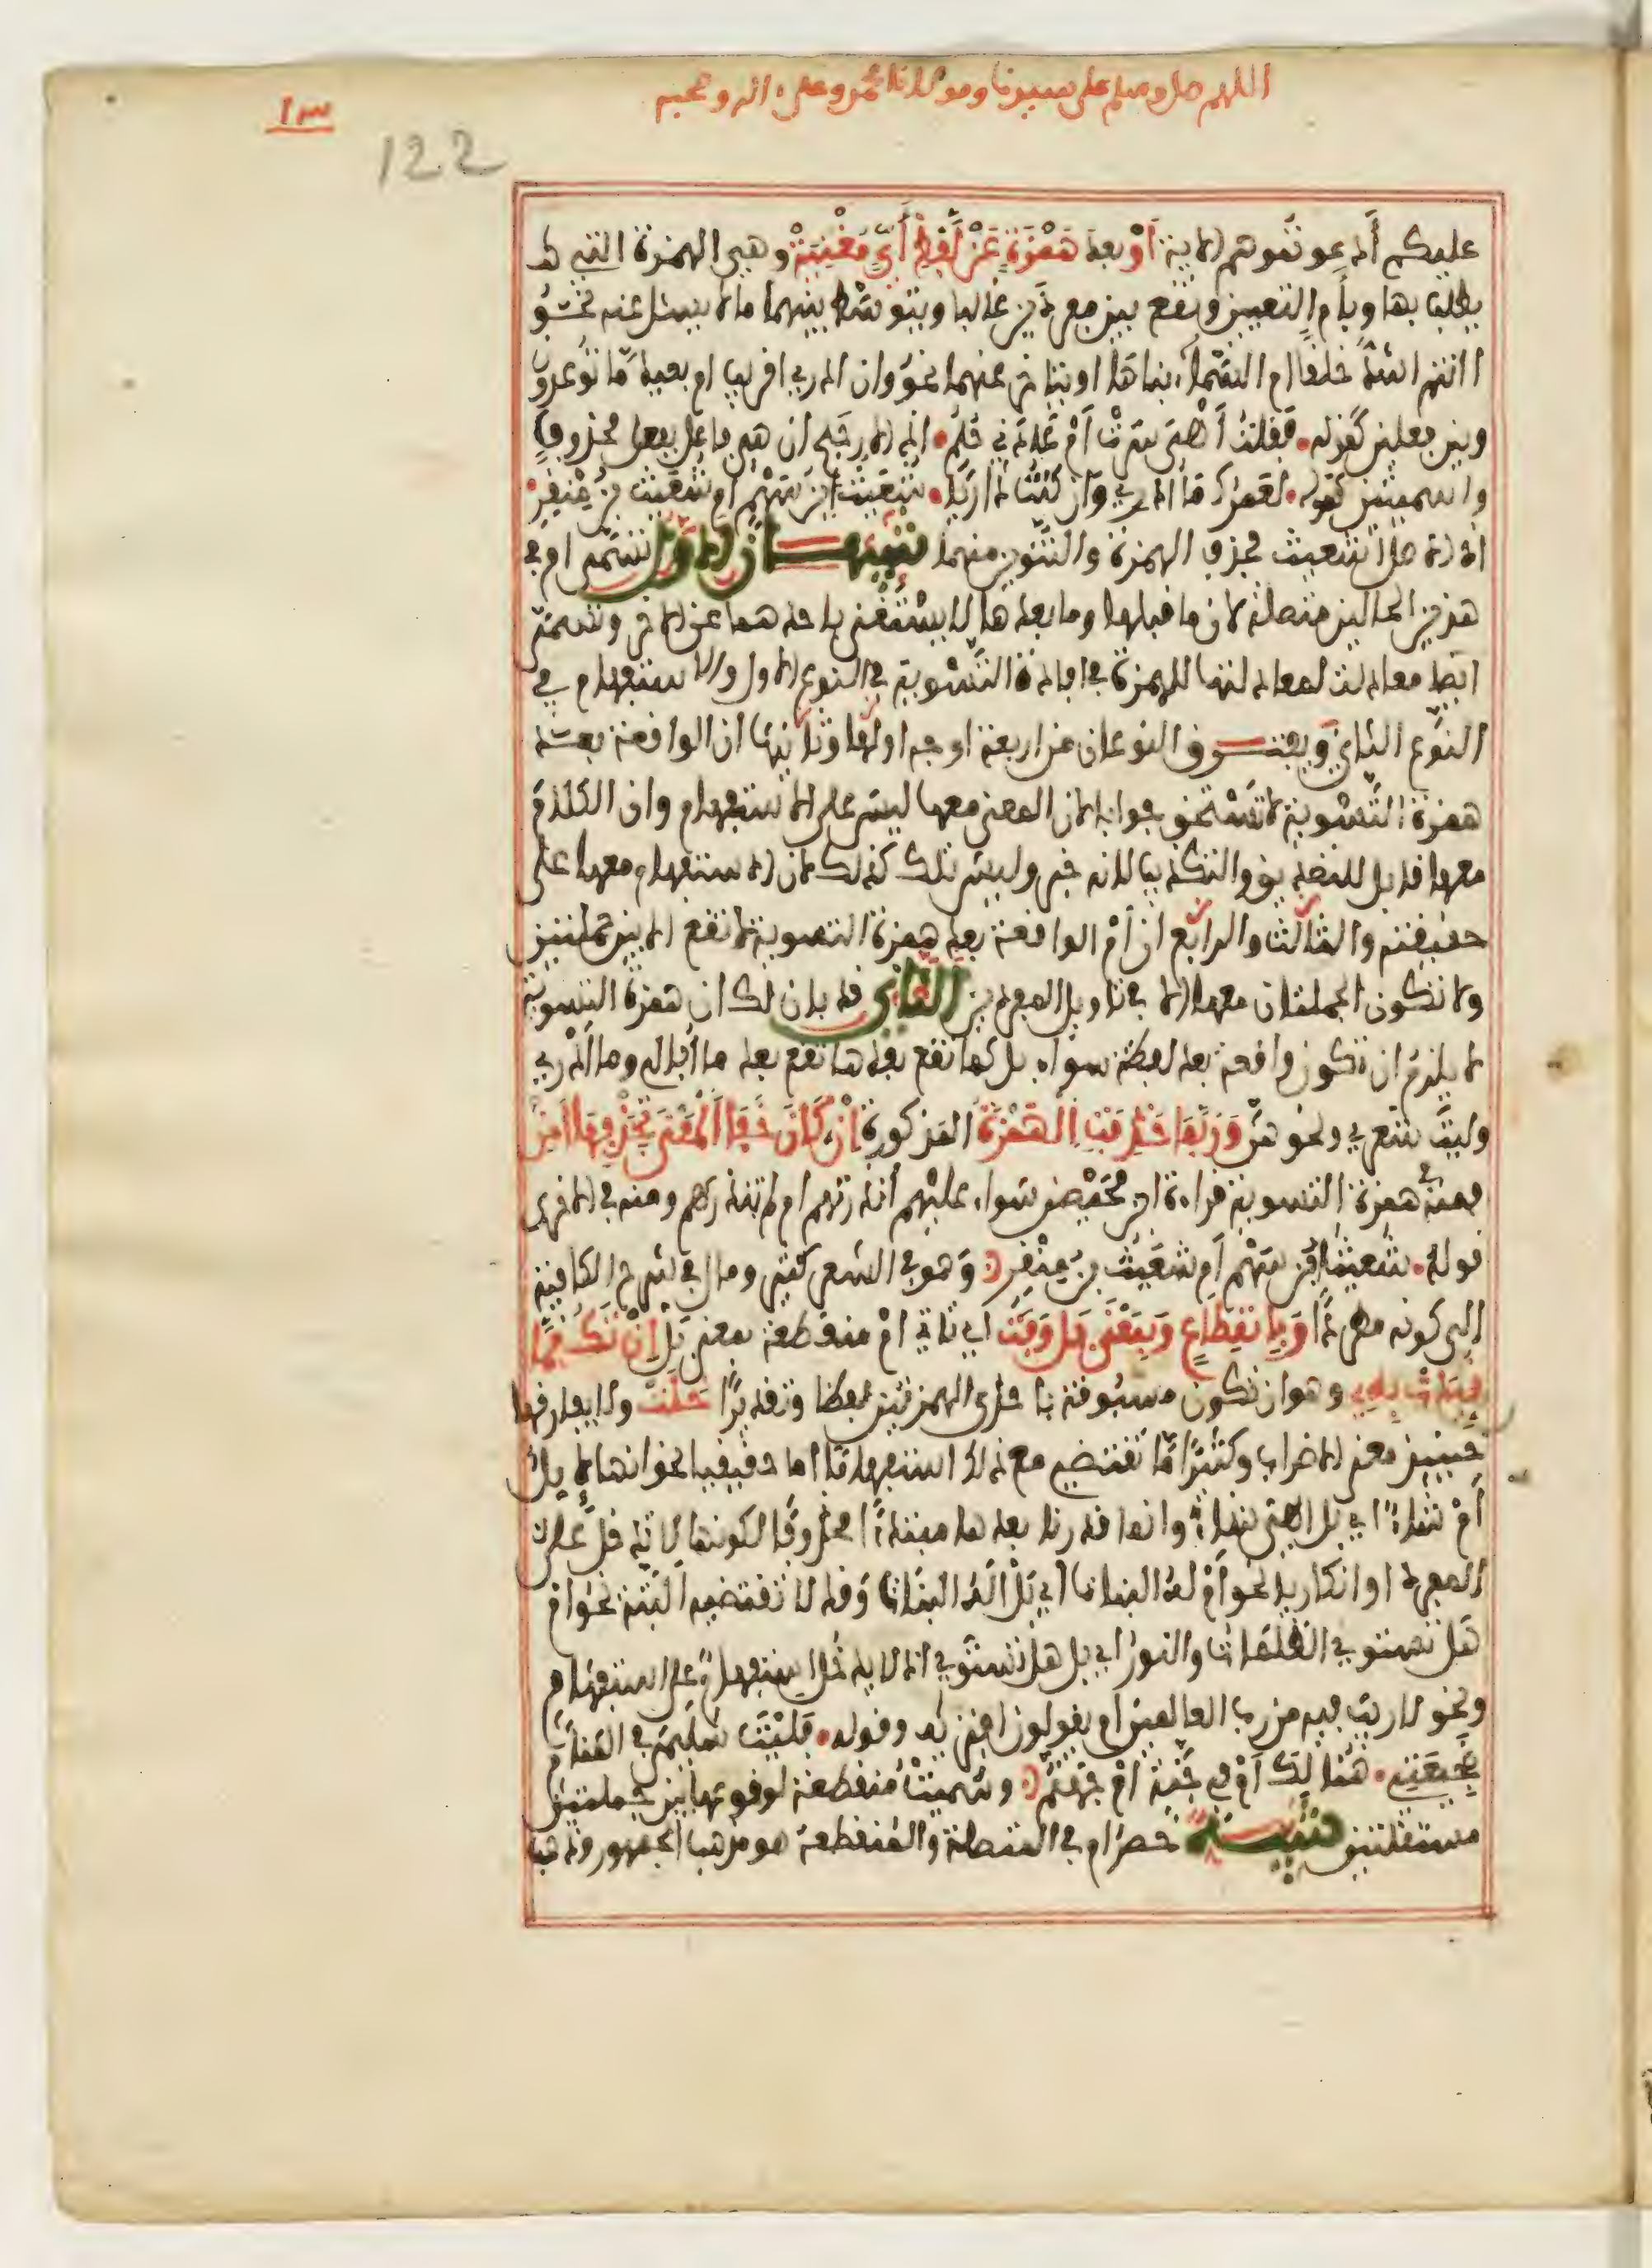 اللهم صل وسلم على سيدنا ومولانا محمد وعلى اله وصحبه
122
عليكم أدعوتموهم الاية أَوْ بعد هَمْزَةٍ عَنْ لَفْظِ أَيٍّ مُغْنِيَهْ وهي الهمزة التي
يطلب بها وبأم التعيين وتقع بين مفردين غالبا ويتوسط بينهما ما لا يسئل عنه نحو
اانتم اشد خلقا ام السماء بناها او يتاخر عنهما نحو وان ادري اقريب ام بعيد ما توعدون
وبين فعلين كقوله فقلت أهي سرت أم عادني حلم اذ الارجح ان هي فاعل بفعل محذوف
واسميتين كقوله لعمرك ما ادري وان كنت داريا شعيث ابن سهم ام شعيث بن منقر
اذ الاصل اشعيث فحذف الهمزة والتنوين منهما تنبيهان الاول تسمى ام في
هذين الحالين متصلة لان ما قبلها وما بعدها لا يستغنى باحدهما عن الاخر وتسمى
ايضا معادلة لمعادلتها للهمزة في افادة التسوية في النوع الاول والاستفهام في
النوع الثاني ويفترق النوعان من اربعة اوجه اولها وثانيها ان الواقعة بعد
همزة التسوية لا تستحق جوابا لان المعنى معها ليس على الاستفهام وان الكلام
معها قابل للتصديق والتكذيب لانه خبر وليس تلك كذلك لان الاستفهام معها على
حقيقته والثالث والرابع ان أم الواقعة بعد همزة التسوية لا تقع الا بين جملتين
ولا تكون الجملتان معها الا في تاويل المفردين الثاني قد بان لك ان همزة التسوية
لا يلزم ان تكون واقعة بعد لفظة سواء بل كما تقع بعدها تقع بعد ما أبالي وما أدري
وليت شعري ونحوهن وَرُبَّمَا حُذِفَتِ الْهَمْزَةُ المذكورة إِنْ كَانَ خَفَا الْمَعْنَى بِحَذْفِهَا أُمِنْ
فمنه في همزة التسوية قراءة ابن محيصن سواء عليهم أنذرتهم ام لم تنذرهم ومنه في الاخرى
قوله شعيث ابن سهم أم شعيث بن منقر وهو في الشعر كثير ومال في شرح الكافية
الى كونه مطردا وَبِانْقِطَاعٍ وَبِمَعْنَى بَلْ وَفَتْ اي تاتي ام منقطعة بمعنى بل إِنْ تَكُ مِمَّا
قُيِّدَتْ بِهِ وهو ان تكون مسبوقة باحدى الهمزتين لفظا وتقديرا خَلَتْ ولا يفارقها
حينئذ معنى الاضراب وكثيرا ما تقتضي مع ذلك استفهاما اما حقيقيا نحو انها لابل
أم شاء اي بل اهي شاء وانما قدرنا بعدها مبتدأ محذوفا لكونها لا تدخل على
المفرد او انكاريا نحو أم له البنات أي بل أله البنات وقد لا تقتضيه البتة نحو ام
هل تستوي الظلمات والنور اي بل هل تستوي اذ لا يدخل استفهام على استفهام
ونحو لا ريب فيه من رب العالمين ام يقولون افتراه وقوله فليت سليمى في المنام
ضجيعتي هنالك أم في جنة ام جهنم وسميت منقطعة لوقوعها بين جملتين
مستقلتين تنبيه حصر ام في المتصلة والمنقطعة هو مذهب الجمهور وذهب